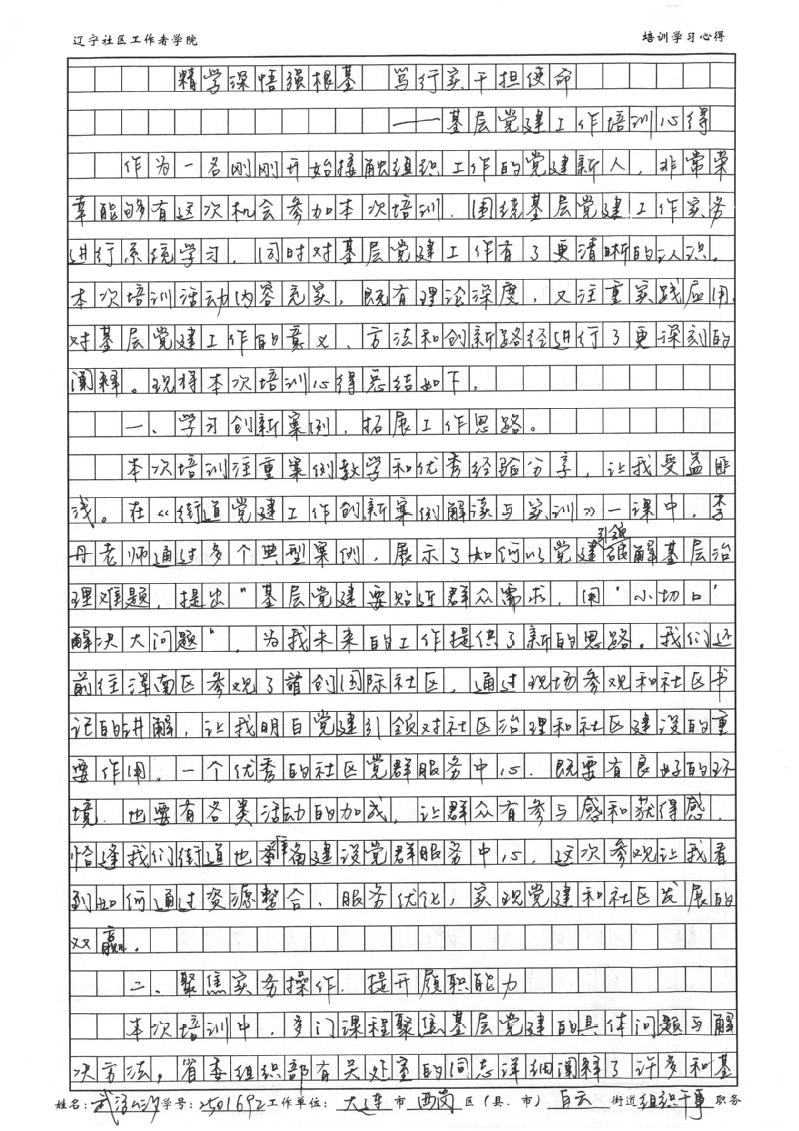 辽宁社区工作者学院 培训学习心得
精学深悟强根基 笃行实干担使命
——基层党建工作培训心得
作为一名刚刚开始接触组织工作的党建新人，非常荣
幸能够有这次机会参加本次培训，围绕基层党建工作实务
进行系统学习，同时对基层党建工作有了更清晰的认识。
本次培训活动内容充实，既有理论深度，又注重实践应用，
对基层党建工作的意义、方法和创新路径进行了更深刻的
阐释。现将本次培训心得总结如下。
一、学习创新案例，拓展工作思路。
本次培训注重案例教学和优秀经验分享，让我受益匪
浅。在《街道党建工作创新案例解读与实训》一课中，李
丹老师通过多个典型案例，展示了如何以党建引领破解基层治
理难题，提出"基层党建要贴近群众需求，用'小切口'
解决大问题"，为我未来的工作提供了新的思路。我们还
前往浑南区参观了首创国际社区，通过现场参观和社区书
记的讲解，让我明白党建引领对社区治理和社区建设的重
要作用。一个优秀的社区党群服务中心，既要有良好的环
境，也要有各类活动的加成，让群众有参与感和获得感。
恰逢我们街道也筹备建设党群服务中心，这次参观让我看
到如何通过资源整合、服务优化，实现党建和社区发展的
双赢。
二、聚焦实务操作，提升履职能力
本次培训中，多门课程聚焦基层党建的具体问题与解
决方法，省委组织部有关处室的同志详细阐释了许多和基
姓名： 学号：2501692 工作单位：大连 市 西岗 区（县、市） 白云 街道 组织干事 职务